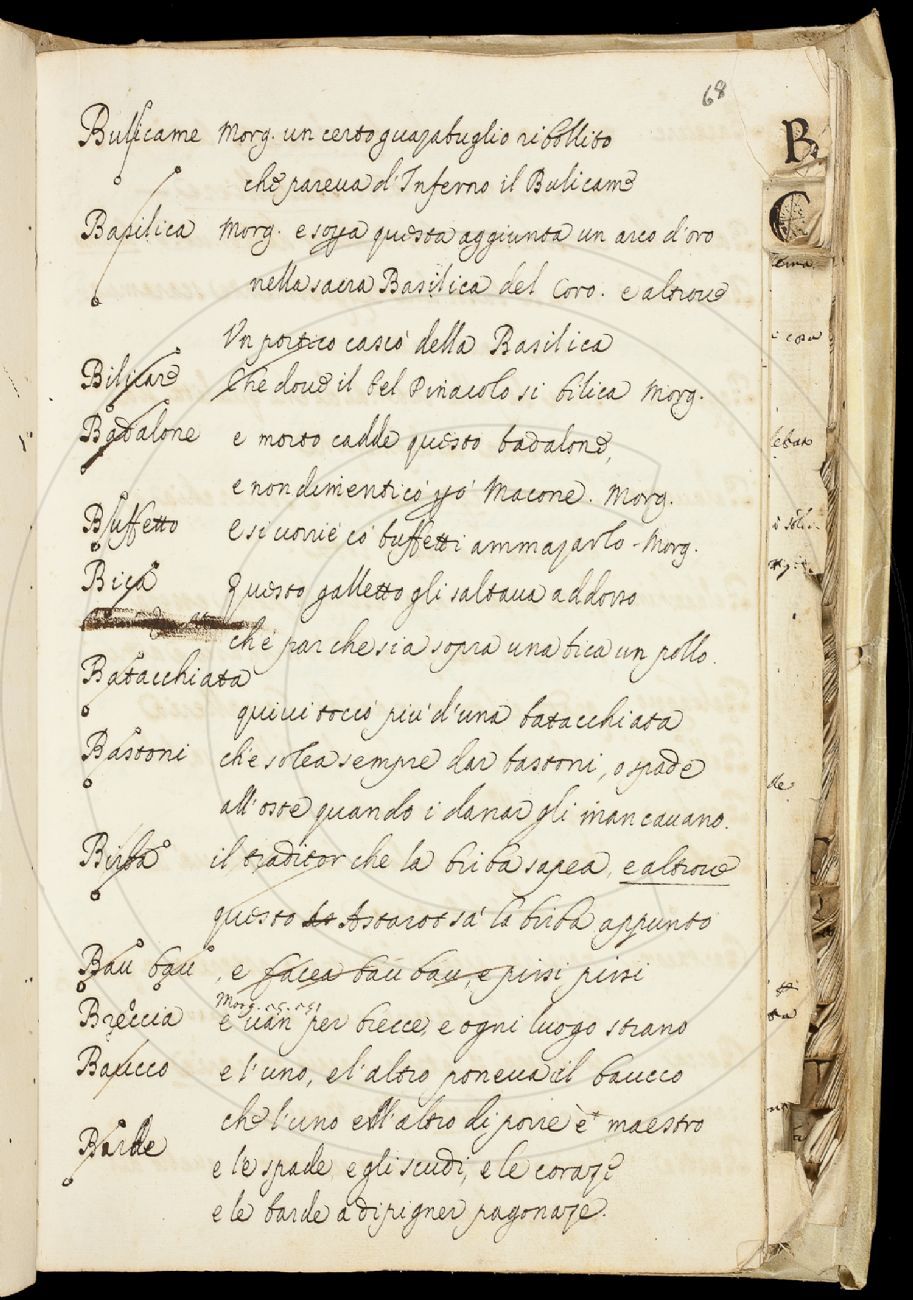 68
B
C
Bulicame Morg. un certo guazabuglio ribollito
che pareua d'Inferno il Bulicame
Basilica Morg. e sopra questa aggiunta un arco d'oro
nella sacra Basilica del Coro. e altroue
Un portico cascò della Basilica
Bilicare Che doue il bel Pinacolo si bilica Morg.
Badalone e morto cadde questo badalone,
e non dimenticò Macone. Morg.
Buffetto e si uorrie cò buffetti ammazarlo - Morg.
Bica Questo galletto gli saltaua addosso
che par che sia sopra una bica un pollo.
Batacchiata
quiui toccò più d'una batacchiata
Bastoni che solea sempre dar bastoni, o spade
all'oste quando i danar gli mancauano.
Birba il traditor che la birba sapea, e altroue
questo Astarot sà la birba appunto
Bau bau , e facea bau bau, e pissi pissi
Morg.
Breccia e uan per brecce, e ogni luogo strano
Baucco e l'uno, e l'altro poneua il baucco
che l'uno e ll'altro di porre è maestro
Barde e le spade, e gli scudi, e le coraze
e le barde a dipigner pagonaze.